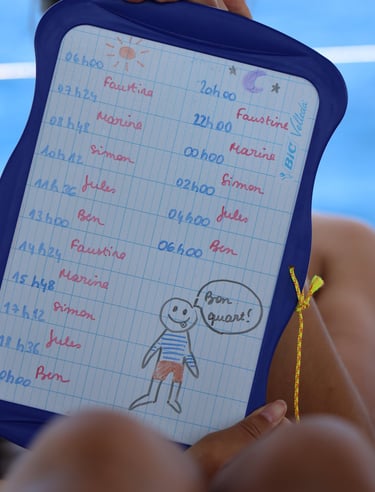 06h00
Faustine
07h24
Marine
08h48
Simon
10h12
Jules
11h36
Ben
13h00
Faustine
14h24
Marine
15h48
Simon
17h12
Jules
18h36
Ben
20h00
20h00
Faustine
22h00
Marine
00h00
Simon
02h00
Jules
04h00
Ben
06h00
Bon
quart!
BIC Velleda